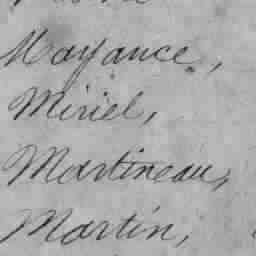 Mayance,
Miriel,
Martineau,
Martin,